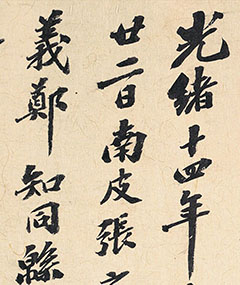 光緒十四年
廿二日南皮張
義鄭知同